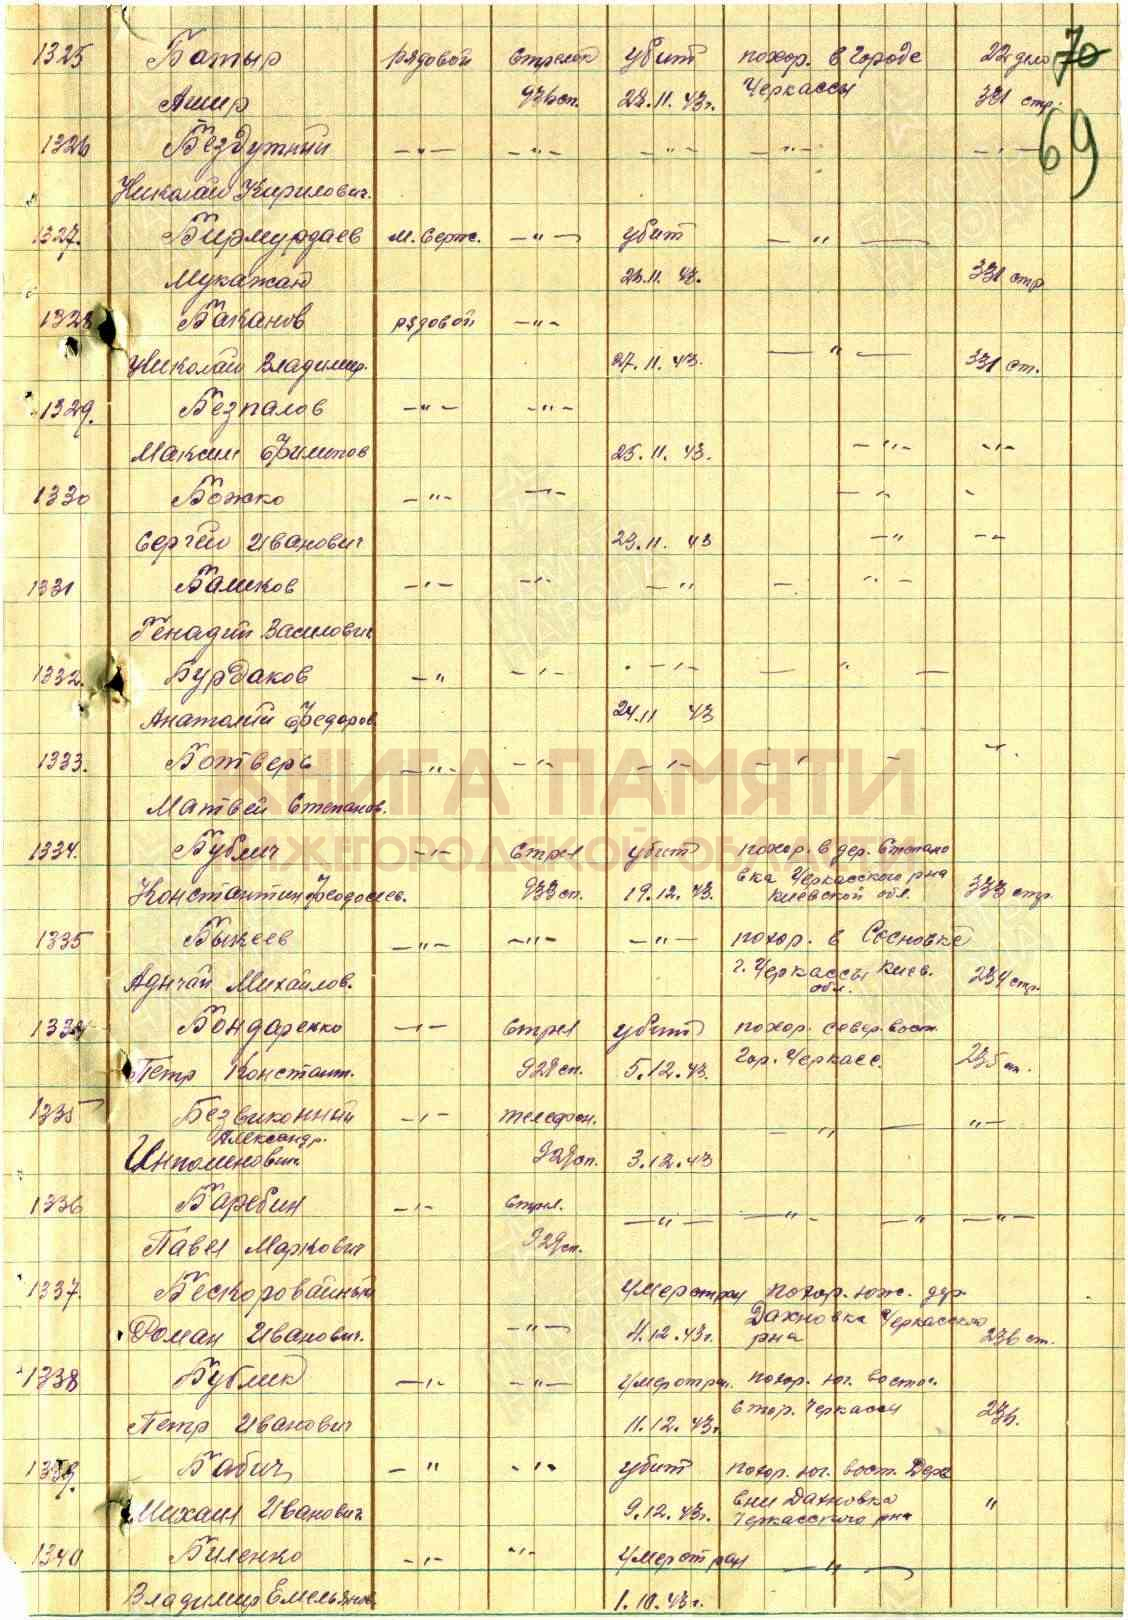 70
69
1325 Батыр рядовой стрелок убит похор. в городе 22 дело
Ашир 936сп. 22.11.43г. Черкассы 331 стр.
1326 Бездутний —"— —"— —"— —"— —"—
Николай Кирилович.
1327. Бирмурдаев м. серж. —"— убит —"—
Мукажан 23.11.43. 331 стр
1328 Баканов рядовой —"—
Николай Владимир. 27.11.43. —"— 331 ст.
1329. Безпалов —"— —"—
Максим Филипов 25.11.43. —"— —"—
1330 Божко —"— —"— —"—
Сергей Иванович 23.11.43 —"— —"—
1331 Баликов —"— —"— —"— —"—
Генадий Василович
1332. Бурдаков —"— —"— —"— —"—
Анатолий Федоров 24.11 43
1333. Ботверь —"— —"— —"— —"— —"—
Матвей Степанов.
КНИГА ПАМЯТИ
НИЖЕГОРОДСКОЙ ОБЛАСТИ
1334. Бублич —"— стрел убит похор. в дер. Степано
Константин Феодосиев. 933сп. 19.12.43. вка Черкасского рна
Киевской обл. 333 стр.
1335 Быкеев —"— —"— —"— похор. в Сосновке
Михайлов. г. Черкассы Киев.
обл. 234 стр.
1334 Бондаренко —"— стрел убит похор. север. вост.
Петр Констант. 929сп. 5.12.43. гор. Черкасс. 235 ст.
1335 Безвиконный —"— телефон. —"— —"—
Александр.
929сп. 3.12.43
1336 Баребин —"— стрел. —"— —"— —"— —"—
Павел Маркович 929сп.
1337. Бескоровайный умер от ран похор. юж. дер.
Роман Иванович. —"— 4.12.43г. Дахновка Черкасского
рна 236 ст.
1338 Бублик —"— —"— умер от ран. похор. юг. восточ.
Петр Иванович 11.12.43г. в гор. Черкассы 236.
1339. Бабич —"— —"— убит похор. юг. вост. Дере
Михаил Иванович. 9.12.43г. вни Дахновка "
Черкасского рна
1340 Биленко —"— —"— умер от ран —"—
Владимир Емельянов. 1.10.43г.